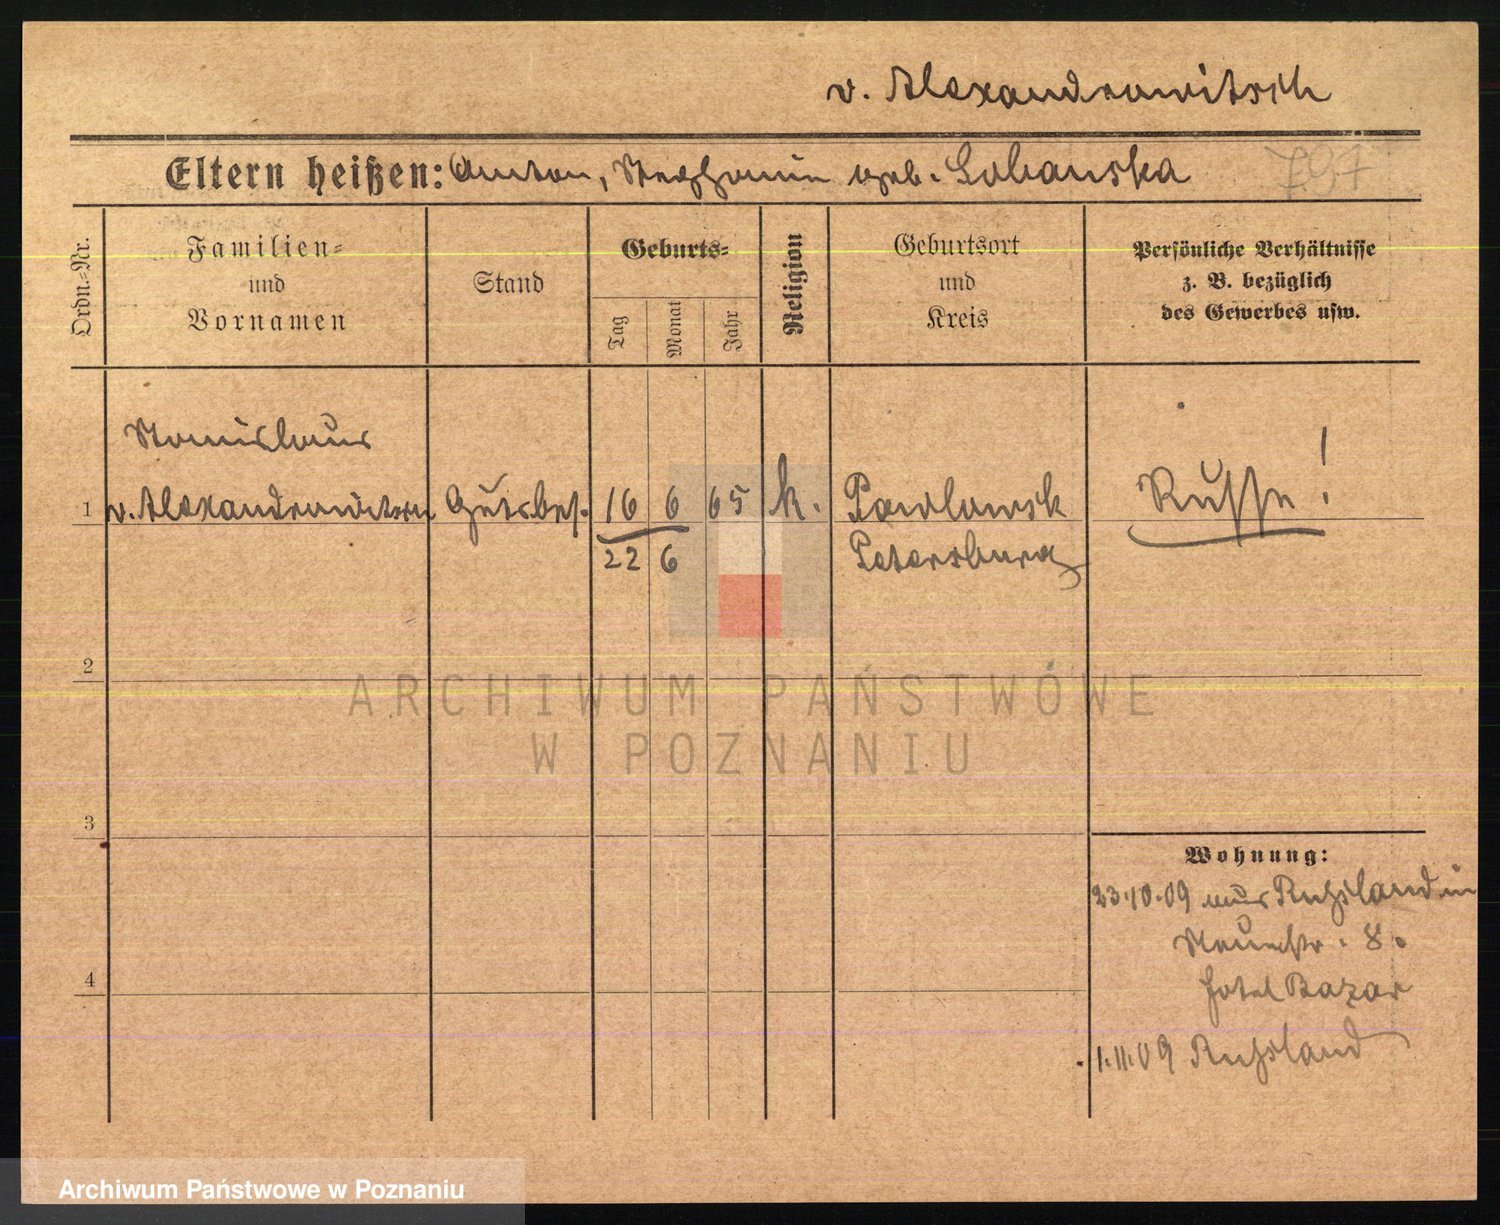 v. Alexandrowitsch
Eltern heißen: Anton, Stephanie geb. Lohanska
797
Ordn.-Nr.
Familien-
und
Vornamen
Stand
Geburts-
Tag
Monat
Jahr
Religion
Geburtsort
und
Kreis
Persönliche Verhältnisse
z. B. bezüglich
des Gewerbes usw.
Stanislaus
1 v. Alexandrowitsch Gutsbes. 16 6 65 k. Pawlowsk Russe!
22 6 Petersburg
2
3
4
Wohnung:
23.10.09 aus Rußland in
Neuestr. 8.
Hotel Bazar
1.11.09 Rußland
ARCHIWUM PAŃSTWOWE
W POZNANIU
Archiwum Państwowe w Poznaniu